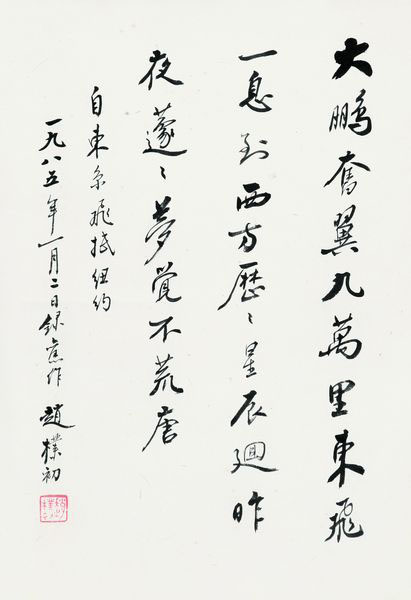 大鵬奮翼九萬里東飛
一息到西方歷〻星辰迴昨
夜蘧〻夢覺不荒唐
自東京飛抵紐約
一九八五年一月二日録舊作 趙樸初